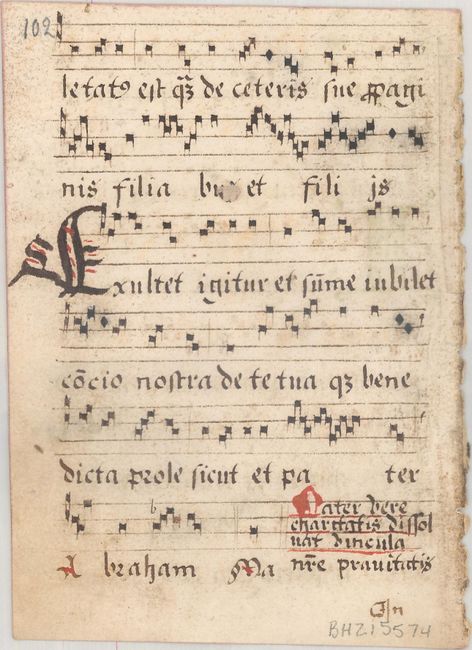 102
letat⁹ est qꝫ de ceteris sue ꝓpagi
nis filia bu et fili js
Exultet igitur et sūme iubilet
cōcio nostra de te tua qꝫ bene
dicta prole sicut et pa ter
A braham Ma
Pater vere
charitatis dissol
uat vincula
nr̄e prauitatis
In
BHZ15574